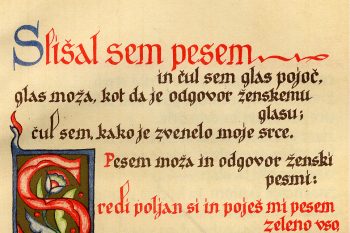 Slišal sem pesem
in čul sem glas pojoč,
glas moža, kot da je odgovor ženskemu
glasu;
čul sem, kako je zvenelo moje srce.
Pesem moža in odgovor ženski
pesmi:
Sredi poljan si in poješ mi pesem
zeleno vso,